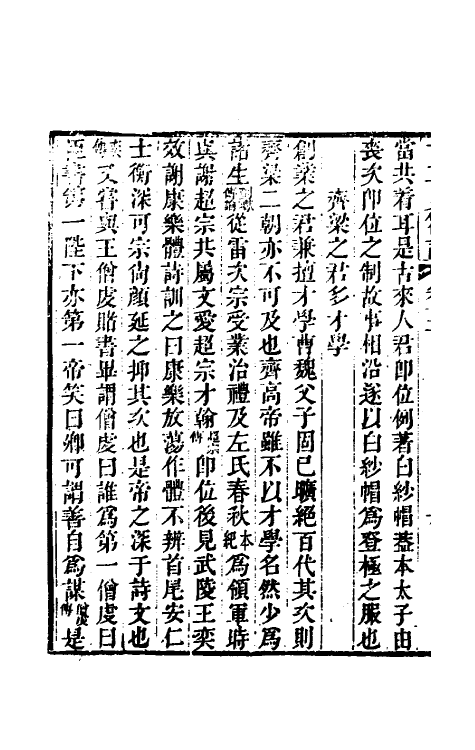 當共着耳是古來人君即位例著白紗帽蓋本太子由
喪次即位之制故事相沿遂以白紗帽爲登極之服也
齊梁之君多才學
創業之君兼擅才學曹魏父子固已曠絕百代其次則
齊梁二朝亦不可及也齊高帝雖不以才學名然少爲
諸生從雷次宗受業治禮及左氏春秋本紀爲領軍時
與謝超宗共屬文愛超宗才翰超宗傳即位後見武陵王奕
效謝康樂體詩訓之曰康樂放蕩作體不辨首尾安仁
士衡深可宗尚顏延之抑其次也是帝之深于詩文也
又嘗與王僧虔賭書畢謂僧虔曰誰爲第一僧虔曰
臣書第一陛下亦第一帝笑曰卿可謂善自爲謀僧虔傳是